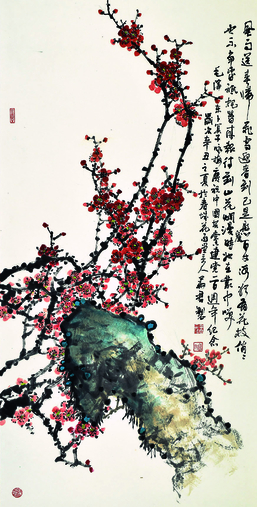 風雨送春歸飛雪迎春到已是懸崖百丈冰猶有花枝俏〻
也不爭春祇把春來報待到山花爛漫時她在叢中笑
毛澤東卜算子詠梅慶祝中國共產黨建黨一百週年紀念
歲次辛丑之夏於春 主人